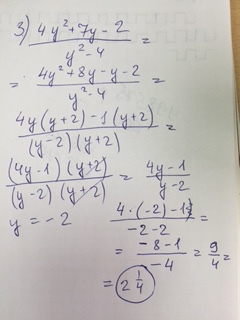 3) (4y²+7y-2)/(y²-4) =
= (4y²+8y-y-2)/(y²-4) =
(4y(y+2)-1(y+2))/((y-2)(y+2)) =
((4y-1)(y+2))/((y-2)(y+2)) = (4y-1)/(y-2)
y = -2 (4·(-2)-1)/(-2-2) =
= (-8-1)/(-4) = 9/4 =
= 2 1/4